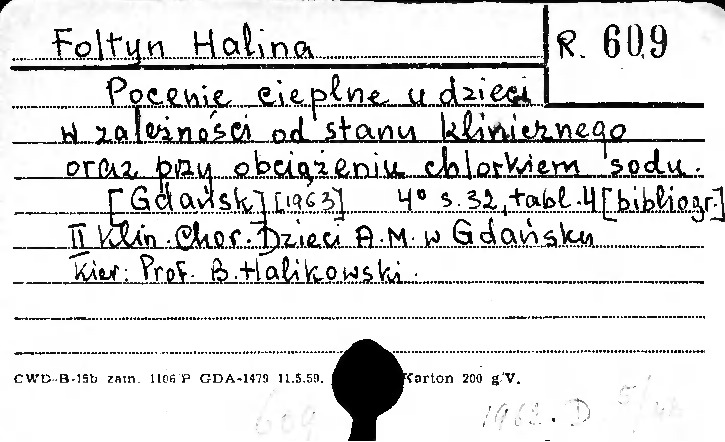 Foltyn Halina
R. 609
Pocenie cieplne u dzieci
w zależności od stanu klinicznego
oraz przy obciążeniu chlorkiem sodu.
[Gdańsk] [1963] 4° s. 32, tabl. 4 [bibliogr.]
II Klin. Chor. Dzieci A.M. w Gdańsku
Kier: Prof. B. Halikowski.
CWD-B-15b zam. 1106 P GDA-1479 11.5.59. Karton 200 g/V.
609 1962. D